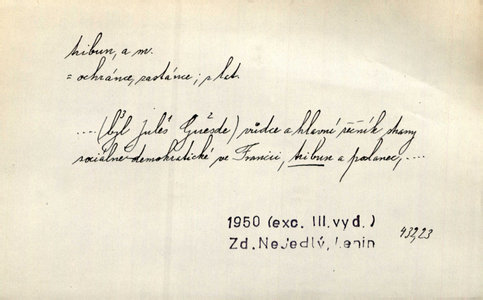 tribun, a m.
= ochránce, zastánce; z lat.
.... (byl Jules Guesde) vůdce a hlavní řečník strany
sociálně-demokratické ve Francii, tribun a poslanec, ....
1950 (exc. III. vyd.)
Zd. Nejedlý, Lenin
432,23